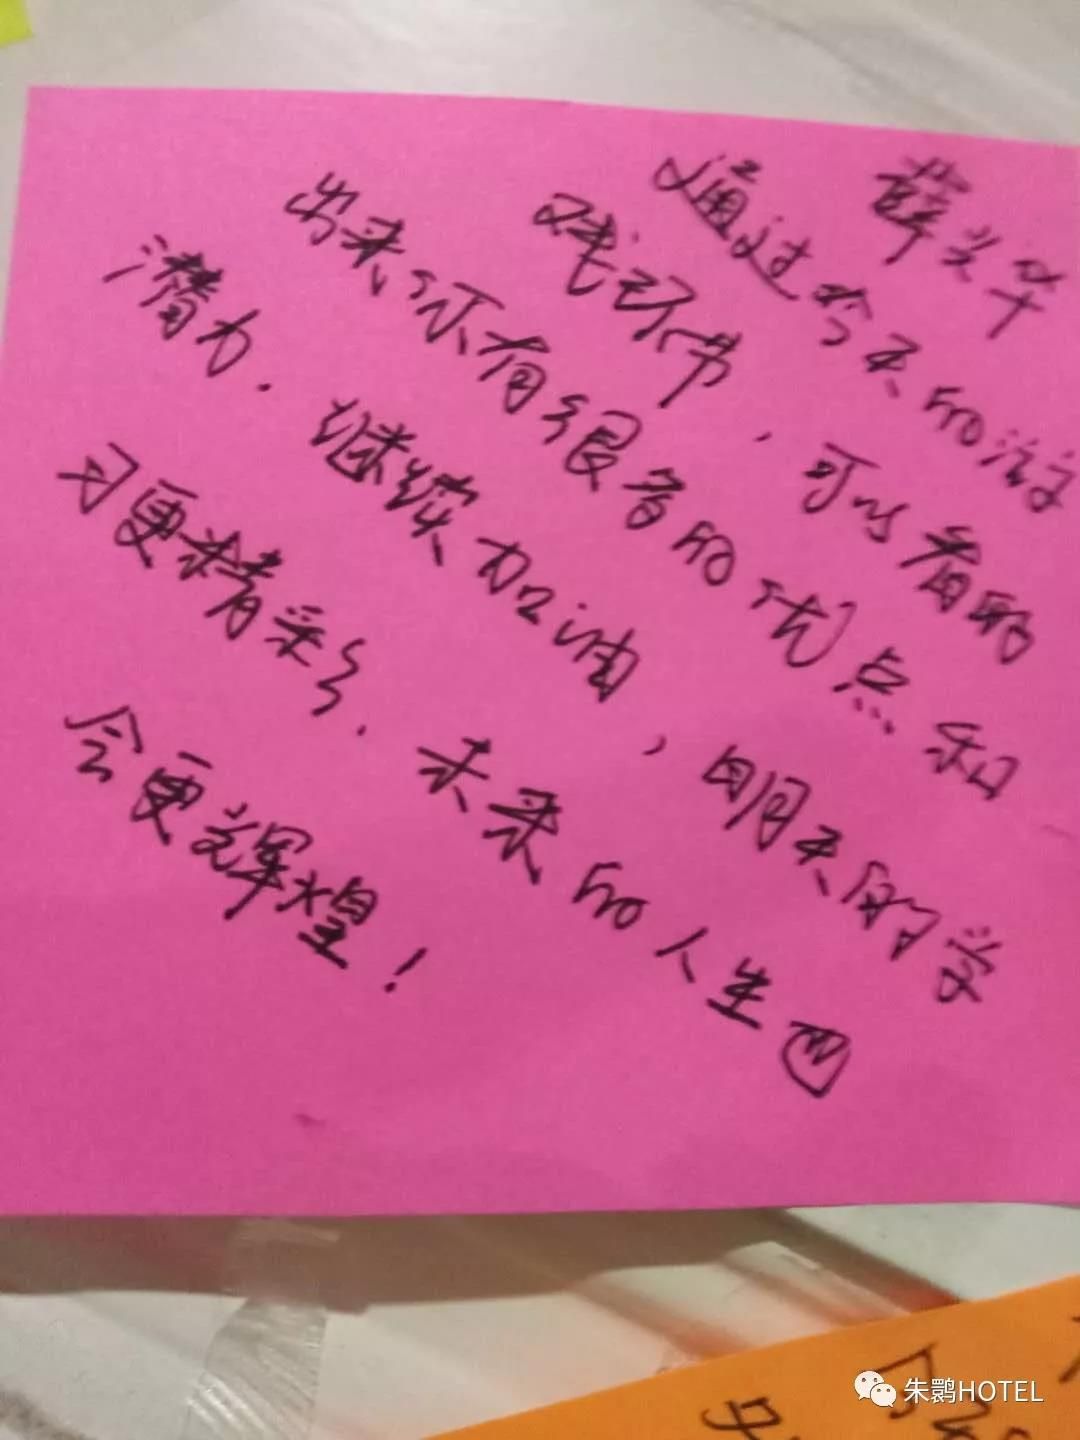 薛华
通过今天的游
戏环节，可以看的
出来你有很多的优点和
潜力．继续加油，明天的学
习更精彩．未来的人生也
会更辉煌！
朱鹮HOTEL